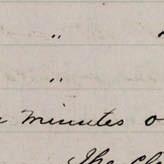 "
"
minutes o
The